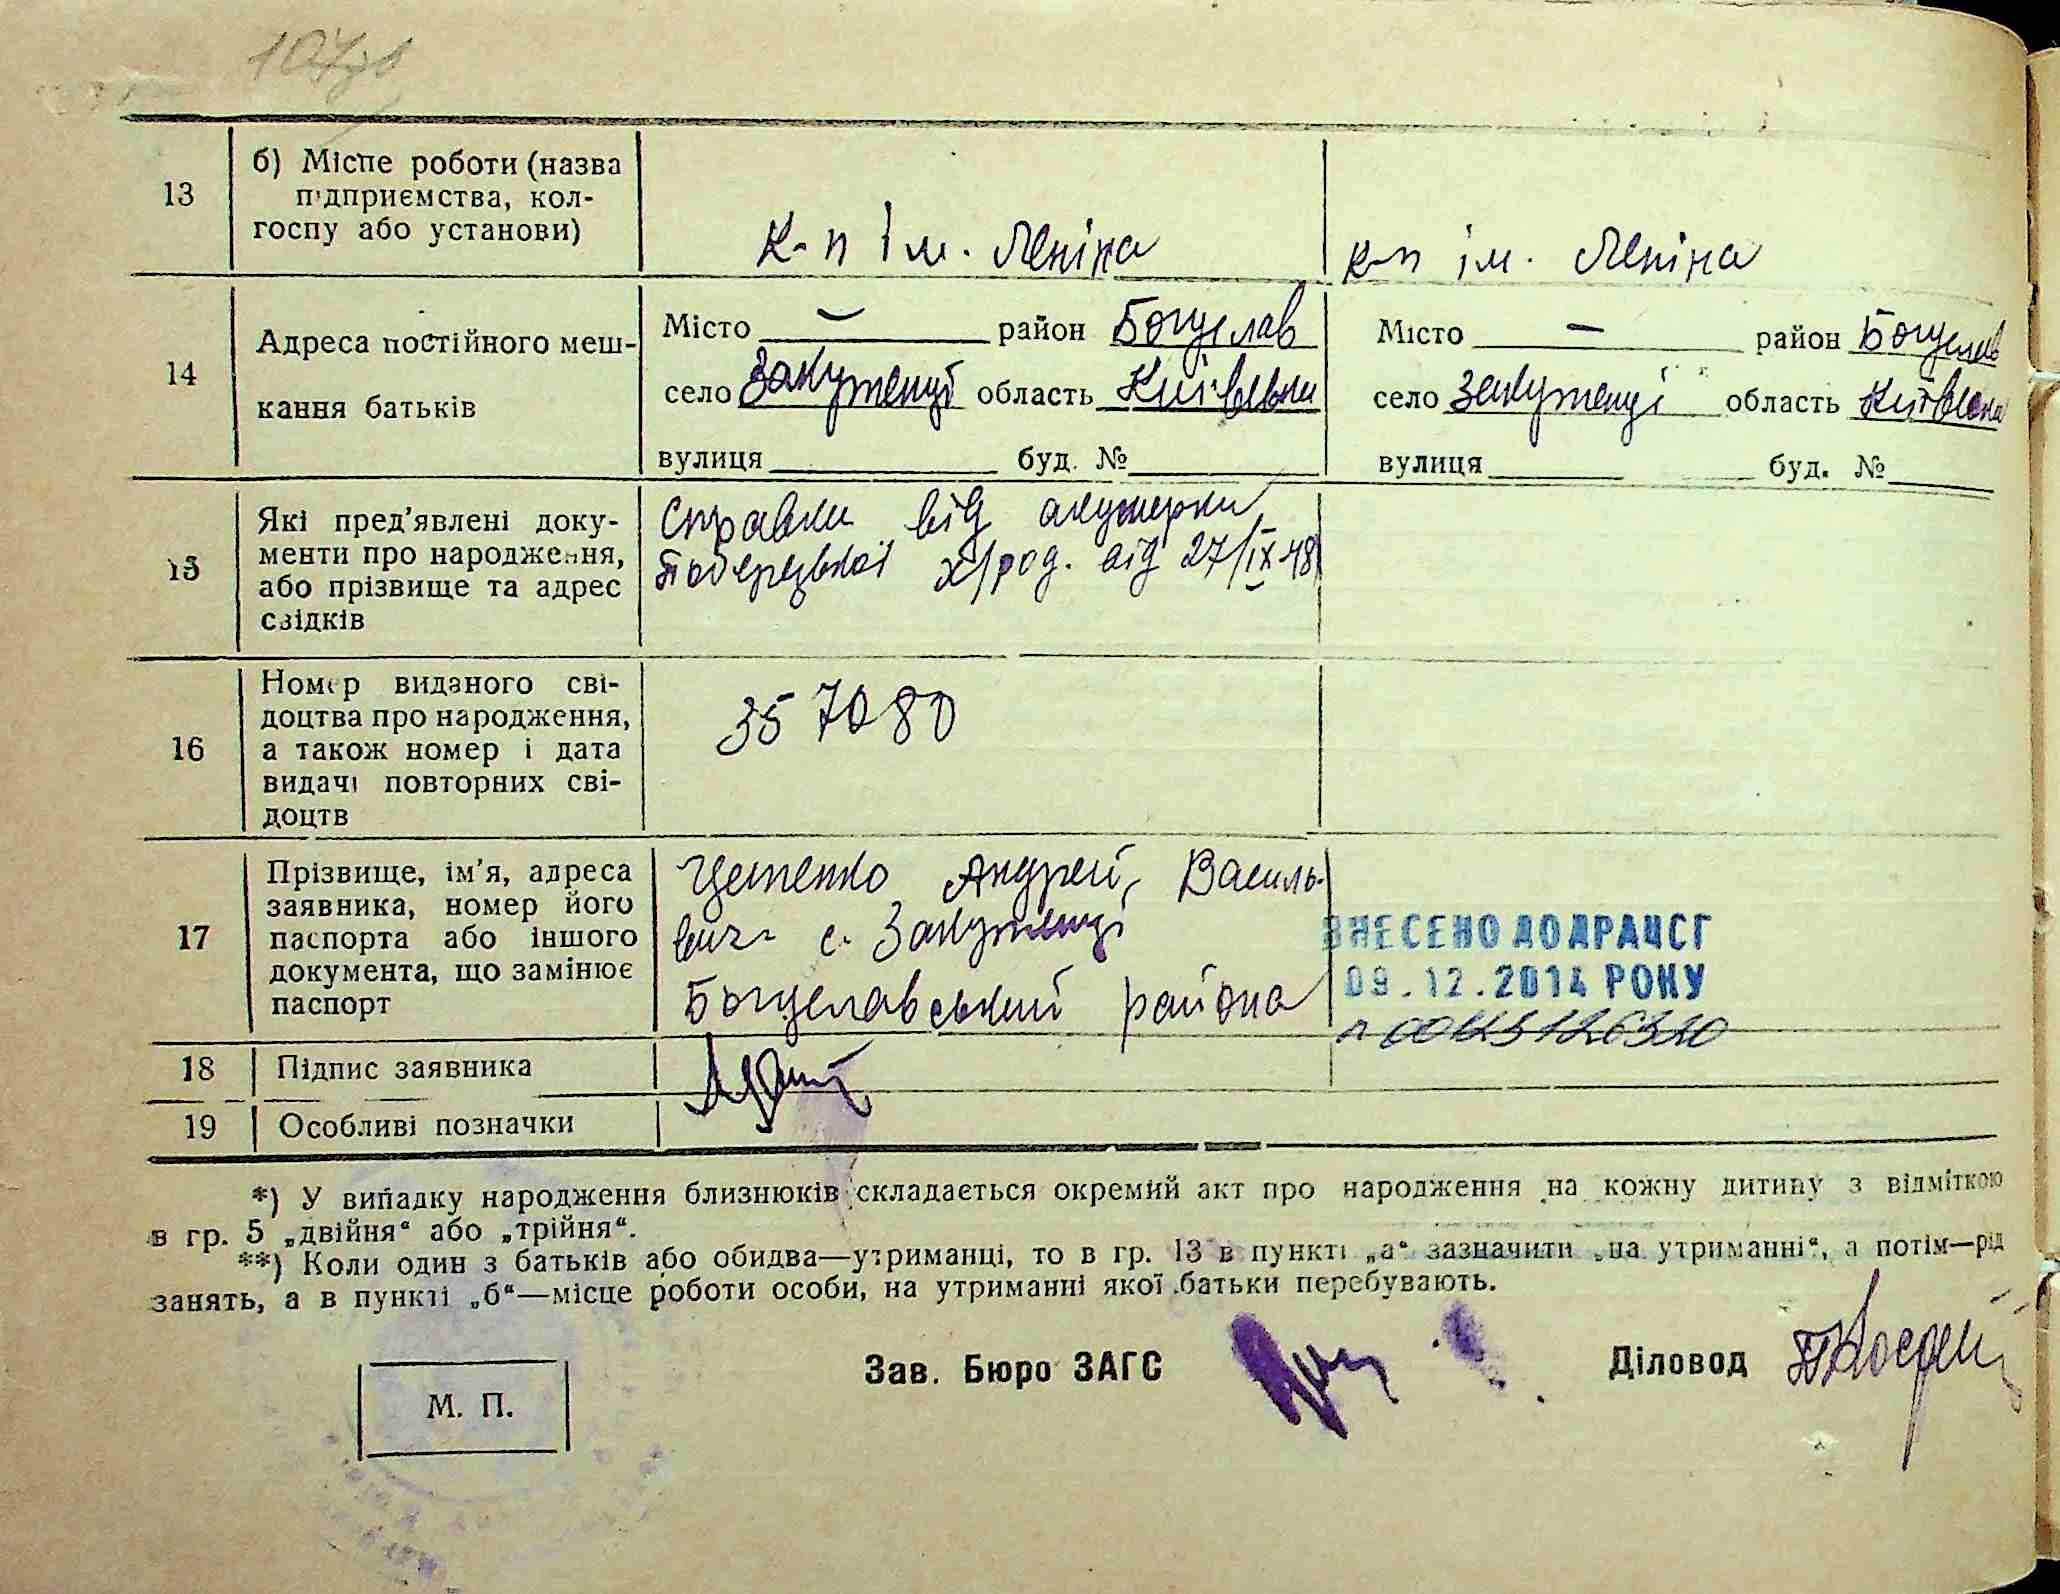 107зв
13
б) Місце роботи (назва
підприємства, кол-
госпу або установи)
к-п ім. Леніна
к-п ім. Леніна
14
Адреса постійного меш-
кання батьків
Місто — район Богуслав
село Закутенці область Київськ
вулиця буд. №
Місто — район Богуслав
село Закутенці область Київська
вулиця буд. №
15
Які пред'явлені доку-
менти про народження,
або прізвище та адрес
свідків
Справки від акушерки
х/род. від 27/IX 48
16
Номер виданого сві-
доцтва про народження,
а також номер і дата
видачі повторних сві-
доцтв
357080
17
Прізвище, ім'я, адреса
заявника, номер його
паспорта або іншого
документа, що замінює
паспорт
Андрей Василь-
евич с. Закутенці
Богуславський района
ВНЕСЕНО ДО ДРАЦСГ
09.12.2014 РОКУ
18
Підпис заявника
19
Особливі позначки
*) У випадку народження близнюків складається окремий акт про народження на кожну дитину з відміткою
в гр. 5 „двійня“ або „трійня“.
**) Коли один з батьків або обидва—утриманці, то в гр. 13 в пункті „а“ зазначити „на утриманні“, а потім—рід
занять, а в пункті „б“—місце роботи особи, на утриманні якої батьки перебувають.
М. П.
Зав. Бюро ЗАГС
Діловод